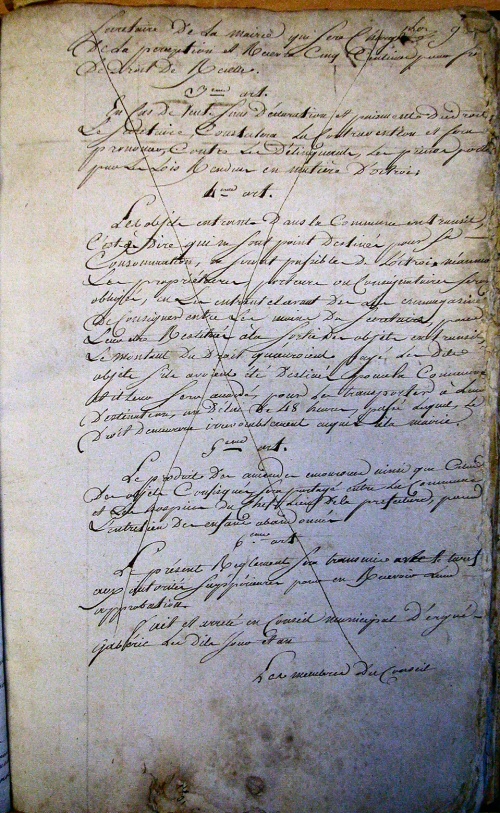 Secretaire De la mairie qui sera
De la perception et Recevra Cinq Centimes pour fr
De droit de Recette.
3eme art.
En Cas de Declaration et paiement du droit
Le Secretaire Constatera la Contravention et fera
prononcer, Contre Le Délinquant, Les peines
par Les Lois Rendues en matière D'octrois
4eme art.
Les objets entrants Dans la Commune en transit,
C'est à Dire qui ne sont point Destinés pour Sa
Consommation, ne seront passibles de L'octroi
Les propriétaires porteurs ou seront
obligés, en Les entrant
De Consigner entre Les mains Du Secretaire, pour
Leur être Restitué a la Sortie des objets en transit,
Le montant du Droit qu'auroient payé Les Dits
objets S'ils avoient été Destinés pour la Commune
et il leur Sera accordé, pour Les transporter à Leur
Destination, un Délai De 48 heures, passé Lequel, Le
Droit Demeurera irrevocablement acquis à la mairie.
5eme art.
Le produit Des amendes encourues ainsi que Celui
Des objets Confisqués Sera partagé entre La Commune
et Les hospices du Chef Lieu De la prefecture, pour
L'entretien Des enfans abandonnés
6eme art.
Le présent Reglement Sera transmis avec le tarif
aux autorités Supérieures pour en Recevoir Leur
approbation.
Fait et arreté en Conseil municipal D'ergué-
gaberic Les Dits Jour et an
Les membres du Conseil